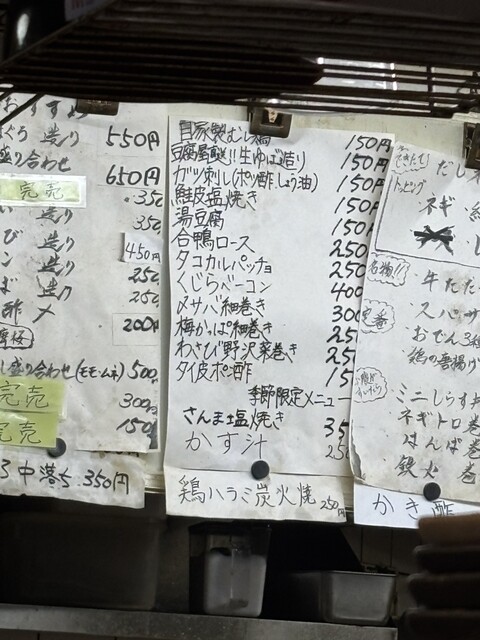 おすすめ
ぐろ 造り 550円
盛り合わせ 650円
完売 350
い 造り 350
び 造り 450円
ン 造り 250
ば 造り 250
酢〆 200円
し盛り合わせ(モモ・ムネ) 500
完売 300円
完売 150
ろ中落ち 350円
自家製むし鶏 150円
豆腐屋謎!!生ゆば造り) 150円
ガツ刺し(ポン酢、しょう油) 150円
鮭皮塩焼き 150円
湯豆腐 150
合鴨ロース 250
タコカルパッチョ 250
くじらベーコン 400
〆サバ細巻き 300
梅かっぱ細巻き 25
わさび野沢菜巻き 25
タイ皮ポン酢 15
季節限定メニュー
さんま塩焼き 35
かす汁 250
鶏ハラミ炭火焼 250円
できたて!
だし
トッピング
ネギ
名物!!
牛たた
定番
スパサ
おでん3種
鶏の唐揚げ
ミニしらす丼
ネギトロ巻
はんぱ巻
鉄火 巻
かき酢